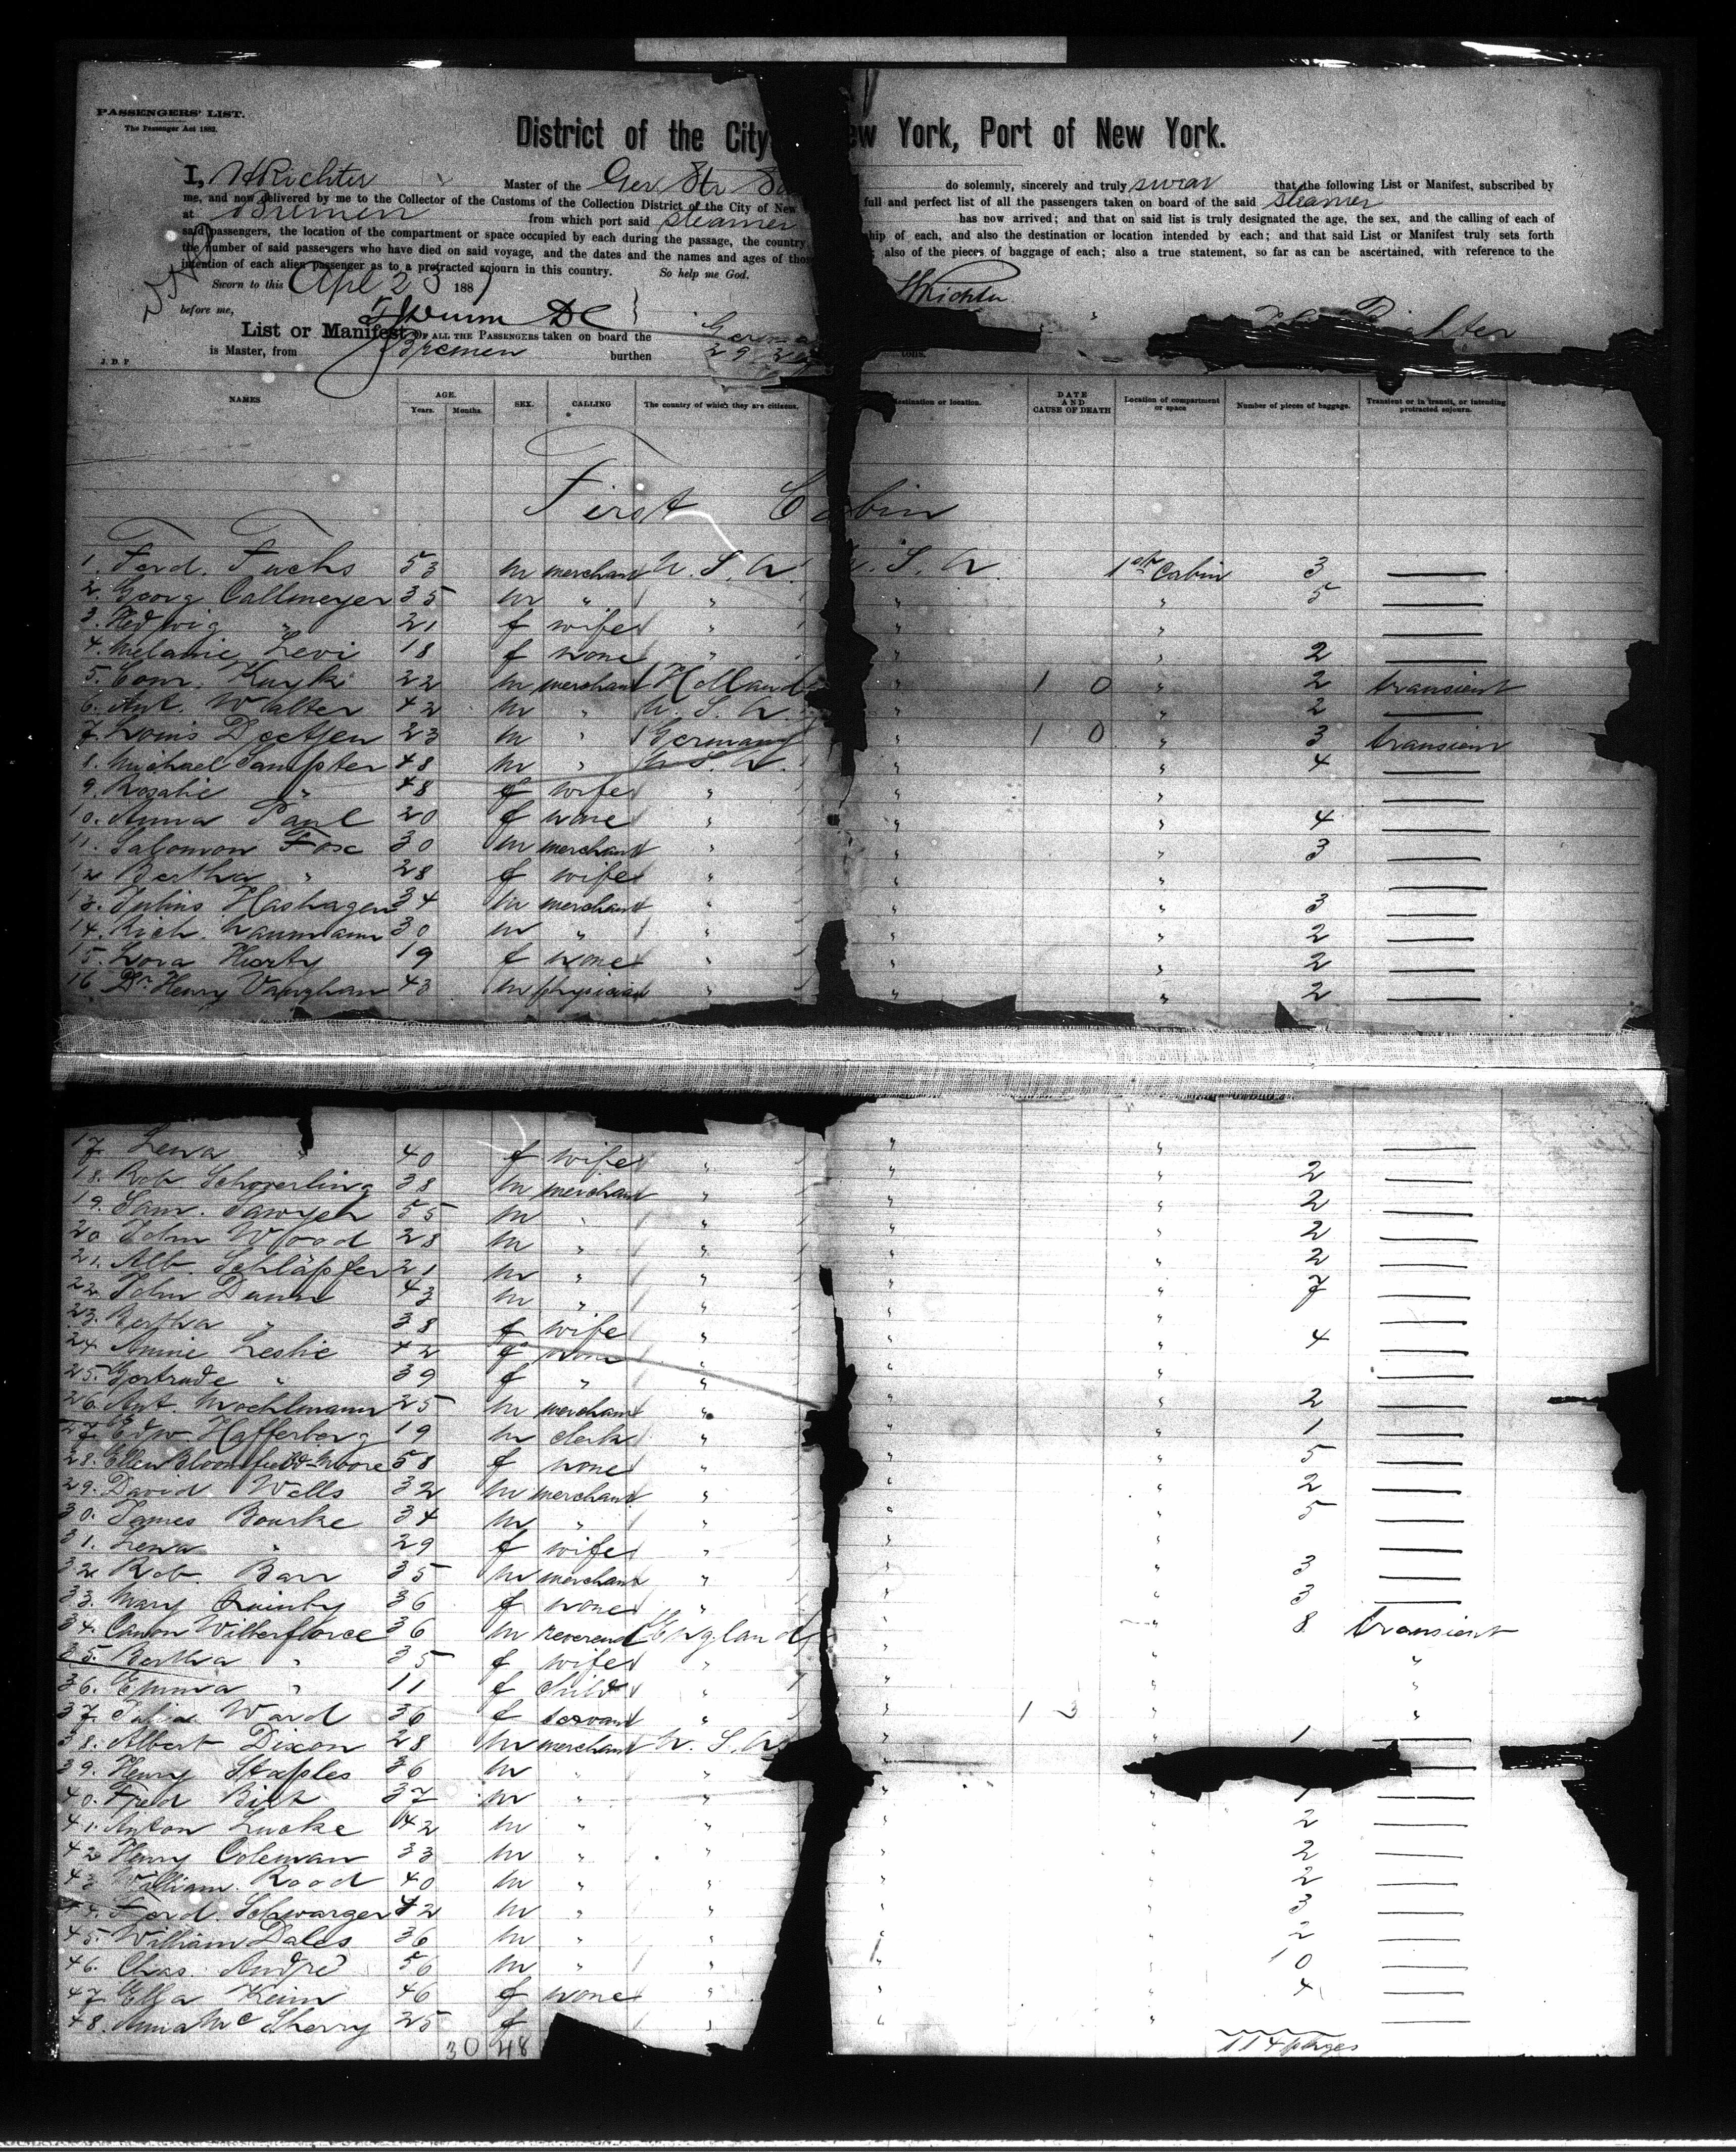 PASSENGERS' LIST.
The Passenger Act 1882.
District of the City ew York, Port of New York.
I, H Richter Master of the Ger Str do solemnly, sincerely and truly swear that the following List or Manifest, subscribed by
me, and now delivered by me to the Collector of the Customs of the Collection District of the City of New full and perfect list of all the passengers taken on board of the said steamer
at Bremen from which port said steamer has now arrived; and that on said list is truly designated the age, the sex, and the calling of each of
said passengers, the location of the compartment or space occupied by each during the passage, the country ship of each, and also the destination or location intended by each; and that said List or Manifest truly sets forth
the number of said passengers who have died on said voyage, and the dates and the names and ages of those ; also of the pieces of baggage of each; also a true statement, so far as can be ascertained, with reference to the
intention of each alien passenger as to a protracted sojourn in this country. So help me God.
Sworn to this Apl 23 1887 H Richter
before me,
List or Manifest OF ALL THE PASSENGERS taken on board the Richter
is Master, from Bremen burthen tons.
J. D. P.
NAMES AGE. Years. Months. SEX. CALLING The country of which they are citizens. Destination or location. DATE AND CAUSE OF DEATH Location of compartment or space Number of pieces of baggage. Transient or in transit, or intending protracted sojourn.
First Cabin
1. Ferd. Fuchs 53 m merchant U. S. A. U. S. A. 1st Cabin 3 —
2. Georg Callmeyer 35 m " " " " 5 —
3. Hedwig " 21 f wife " " " —
4. Melanie Levi 18 f none " " " 2 —
5. Conr. Kuyk 22 m merchant Holland " 1 0 " 2 transient
6. Ant. Walter 42 m " U. S. A. " " 2 —
7. Louis Doetjen 23 m " Germany " 1 0 " 3 transient
8. Michael Sampter 48 m " U. S. A. " " 4 —
9. Rosalie " 48 f wife " " " —
10. Anna Paul 20 f none " " " 4 —
11. Salomon Fox 30 m merchant " " " 3 —
12 Bertha " 28 f wife " " " —
13. Julius Hashagen 34 m merchant " " " 3 —
14. Rich. Naumann 30 m " " " " 2 —
15. Lora Harty 19 f none " " " 2 —
16 Dr. Henry Vaughan 43 m physician " " 2 —
17 Lena " 40 f wife " " " —
18. Rob Schoverling 38 m merchant " " " 2 —
19. Sam. Sawyer 55 m " " " " 2 —
20 John Wood 28 m " " " " 2 —
21. Alb. Schläpfer 21 m " " " " 2 —
22. John Dunn 43 m " " " " 7 —
23. Bertha " 38 f wife " " " —
24. Annie Leslie 42 f none " " " 4 —
25. Gertrude " 39 f " " " " —
26. Ant. Mochlmann 25 m merchant " " " 2 —
27. Edw Hafferberg 19 m clerk " " " 1 —
28. Ellen Bloomfield-Moore 58 f none " " " 5 —
29. David Wells 32 m merchant " " " 2 —
30. James Bourke 34 m " " " " 5 —
31. Lena " 29 f wife " " " —
32 Rob. Barr 35 m merchant " " " 3 —
33. Mary Quimby 36 f none " " " 3 —
34. Canon Wilberforce 36 m reverend England " " 8 transient
35. Bertha " 35 f wife " " " "
36. Emma " 11 f child " " " "
37. Julia Ward 36 f servant " " 1 3 " "
38. Albert Dixon 28 m merchant U. S. A. " " 1 —
39. Henry Staples 36 m " " " —
40. Fred Bilk 37 m " " " " —
41. Anton Lucke 42 m " " " " 2 —
42 Henry Coleman 33 m " " " " 2 —
43 William Rood 40 m " " " " 2 —
44. Ferd. Schwarger 42 m " " " " 3 —
45. William Dales 36 m " " " " 2 —
46. Chas. André 56 m " " " " 10 —
47 Ella Keim 46 f none " " " 4 —
48. Anna Mc Sherry 25 f " " " —
30 48 114 pages